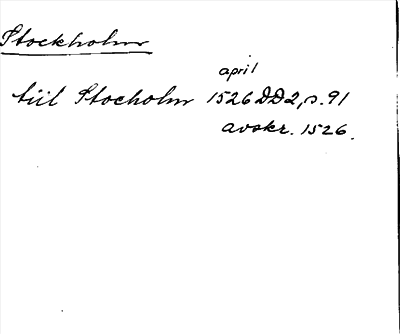 Stockholm
april
tiil Stocholm 1526 DD2, s. 91
avskr. 1526.